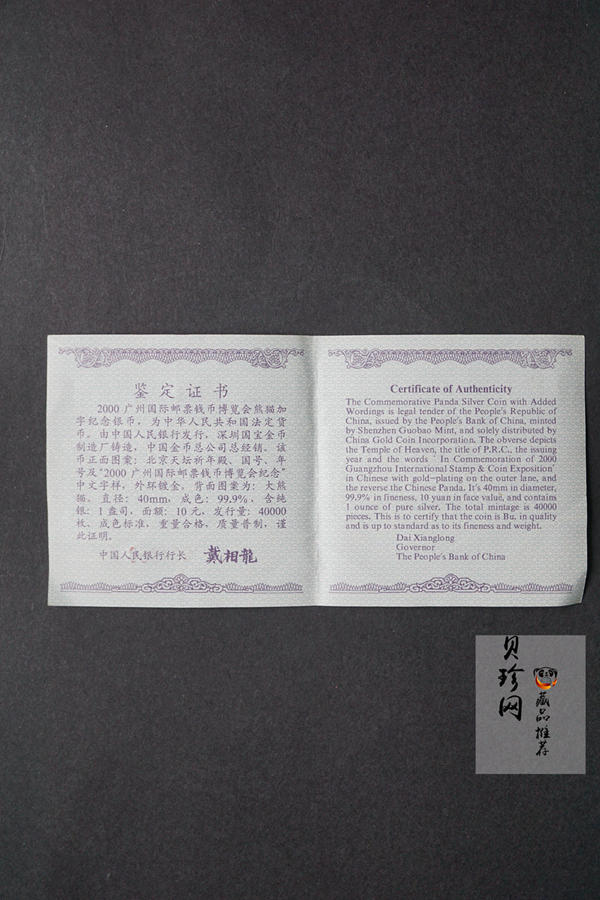 鉴定证书
2000 广州国际邮票钱币博览会熊猫加
字纪念银币，为中华人民共和国法定货
币。由中国人民银行发行，深圳国宝金币
制造厂铸造，中国金币总公司总经销。该
币正面图案：北京天坛祈年殿、国号、年
号及"2000 广州国际邮票钱币博览会纪念"
中文字样，外环镀金，背面图案为：大熊
猫。直径：40mm，成色：99.9%，含纯
银：1 盎司，面额：10 元，发行量：40000
枚。成色标准，重量合格，质量普制，谨
此证明。
中国人民银行行长 戴相龍
Certificate of Authenticity
The Commemorative Panda Silver Coin with Added
Wordings is legal tender of the People's Republic of
China, issued by the People's Bank of China, minted
by Shenzhen Guobao Mint, and solely distributed by
China Gold Coin Incorporation. The obverse depicts
the Temple of Heaven, the title of P.R.C., the issuing
year and the words " In Commemoration of 2000
Guangzhou International Stamp & Coin Exposition"
in Chinese with gold-plating on the outer lane, and
the reverse the Chinese Panda. It's 40mm in diameter,
99.9% in fineness, 10 yuan in face value, and contains
1 ounce of pure silver. The total mintage is 40000
pieces. This is to certify that the coin is Bu. in quality
and is up to standard as to its fineness and weight.
Dai Xianglong
Governor
The People's Bank of China
贝珍网
藏品推荐